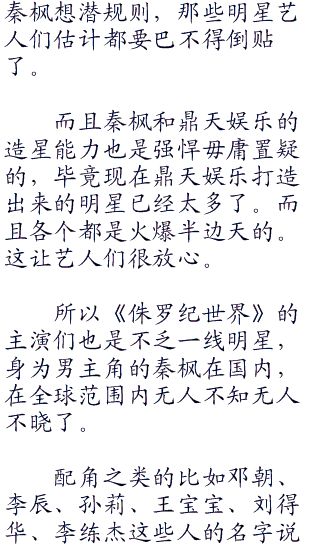 秦枫想潜规则，那些明星艺
人们估计都要巴不得倒贴
了。
而且秦枫和鼎天娱乐的
造星能力也是强悍毋庸置疑
的，毕竟现在鼎天娱乐打造
出来的明星已经太多了。而
且各个都是火爆半边天的。
这让艺人们很放心。
所以《侏罗纪世界》的
主演们也是不乏一线明星，
身为男主角的秦枫在国内，
在全球范围内无人不知无人
不晓了。
配角之类的比如邓朝、
李辰、孙莉、王宝宝、刘得
华、李练杰这些人的名字说